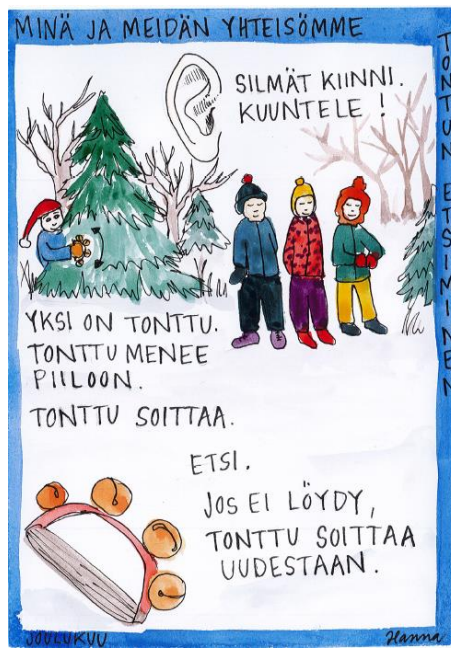 MINÄ JA MEIDÄN YHTEISÖMME
TONTUN ETSIMINEN
SILMÄT KIINNI.
KUUNTELE!
YKSI ON TONTTU.
TONTTU MENEE
PIILOON.
TONTTU SOITTAA.
ETSI.
JOS EI LÖYDY,
TONTTU SOITTAA
UUDESTAAN.
JOULUKUU
Hanna